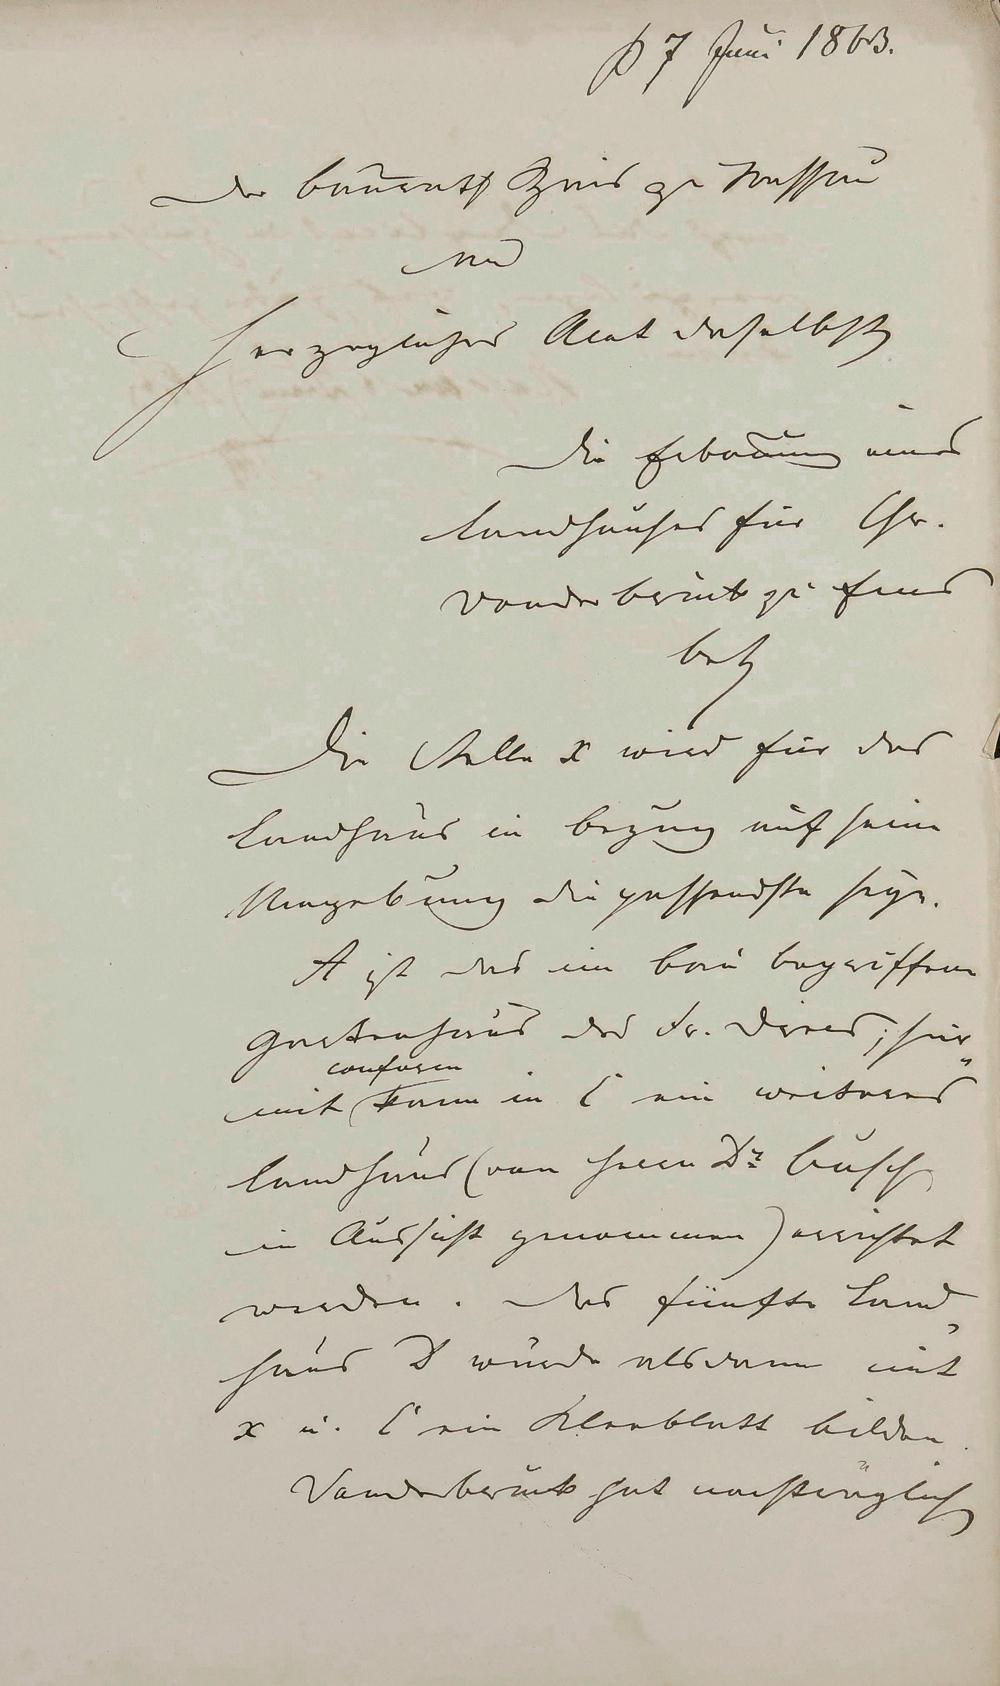 D 7 Juni 1863.
Der Bauassess Zais zu Nassau
an
Herzogliches Amt daselbst
Die Erbauung eines
Landhauses für Chr.
Vonderbrück zu Ems
betr
Die Stelle x wird für das
Landhaus in Bezug auf seine
Umgebung die passendste seyn.
A ist das im Bau begriffene
Gartenhaus des Hr. ; hier„
conform
mit kann in C ein weiteres
Landhaus (von Herrn Dr Busch
in Aussicht genommen) errichtet
werden. Das fünfte Land„
haus D würde alsdann mit
x u. C ein Kleeblatt bilden.
Vonderbrück hat nachträglich